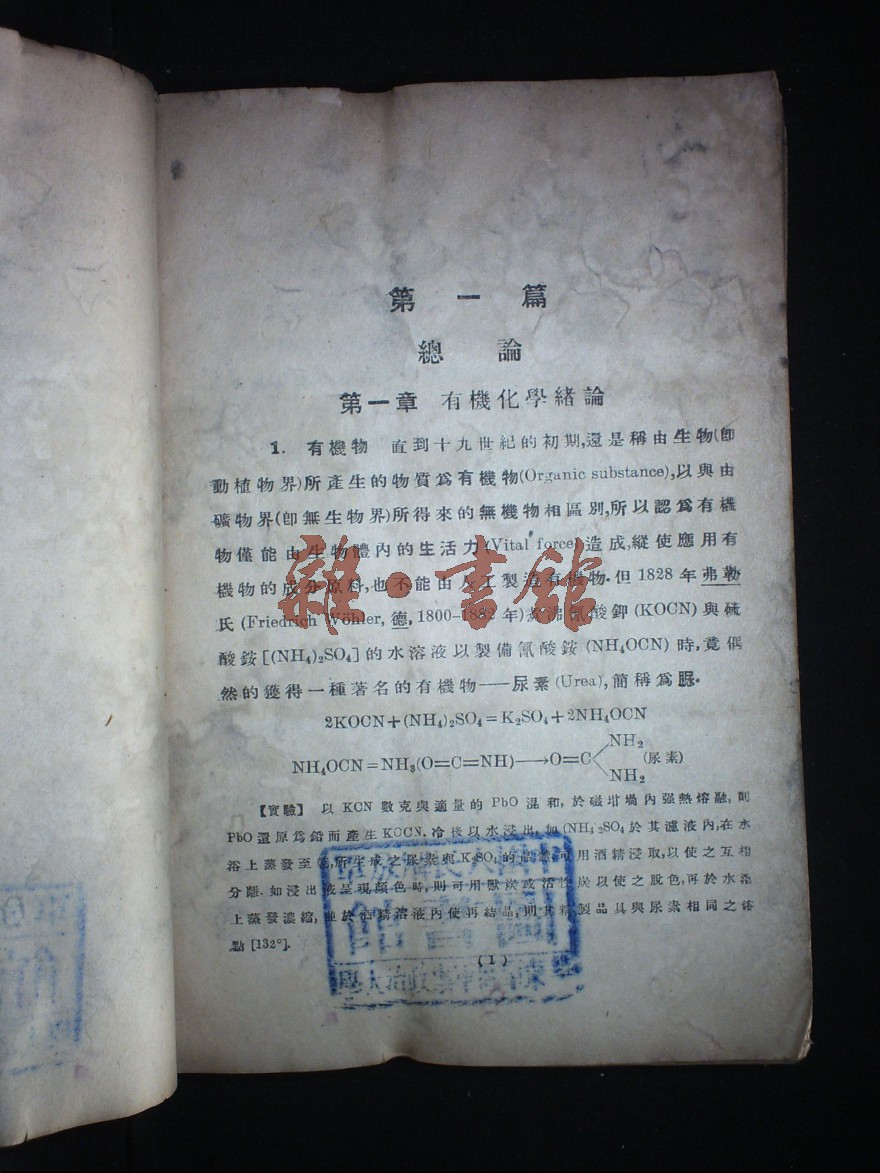 第一篇
總論
第一章 有機化學緒論
1. 有機物 直到十九世紀的初期,還是稱由生物(卽
動植物界)所產生的物質爲有機物(Organic substance),以與由
礦物界(卽無生物界)所得來的無機物相區別,所以認爲有機
物僅能由生物體內的生活力(Vital force)造成,縱使應用有
機物的成分原料,也不能由人工製造有機物.但 1828 年弗勒
氏 (Friedrich Wöhler, 德, 1800–1882 年)煮沸氰酸鉀 (KOCN) 與硫
酸銨 [(NH₄)₂SO₄] 的水溶液以製備氰酸銨 (NH₄OCN) 時,竟偶
然的獲得一種著名的有機物——尿素 (Urea),簡稱爲脲.
2KOCN+(NH₄)₂SO₄=K₂SO₄+2NH₄OCN
NH₄OCN=NH₃(O=C=NH)⟶O=C<NH₂ NH₂ (尿素)
【實驗】 以 KCN 數克與適量的 PbO 混和, 於磁坩堝內强熱熔融, 則
PbO 還原爲鉛而產生 KOCN. 冷後以水浸出, 加 (NH₄)₂SO₄ 於其濾液內,在水
浴上蒸發至乾,所生成之尿素與 K₂SO₄ 的 可用酒精浸取,以使之互相
分離. 如浸出液呈現顏色時,則可用獸炭或活性炭以使之脫色,再於水浴
上蒸發濃縮, 於酒精溶液內使再結晶,則其精製品具與尿素相同之熔
點 [132°].
(1)
雜·書館
圖書館